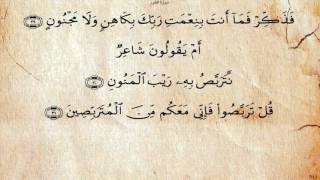 سورة الطور
فَذَكِّرْ فَمَآ أَنتَ بِنِعْمَتِ رَبِّكَ بِكَاهِنٍ وَلَا مَجْنُونٍ ﴿٢٩﴾
أَمْ يَقُولُونَ شَاعِرٌ
نَّتَرَبَّصُ بِهِۦ رَيْبَ ٱلْمَنُونِ ﴿٣٠﴾
قُلْ تَرَبَّصُوا۟ فَإِنِّى مَعَكُم مِّنَ ٱلْمُتَرَبِّصِينَ ﴿٣١﴾